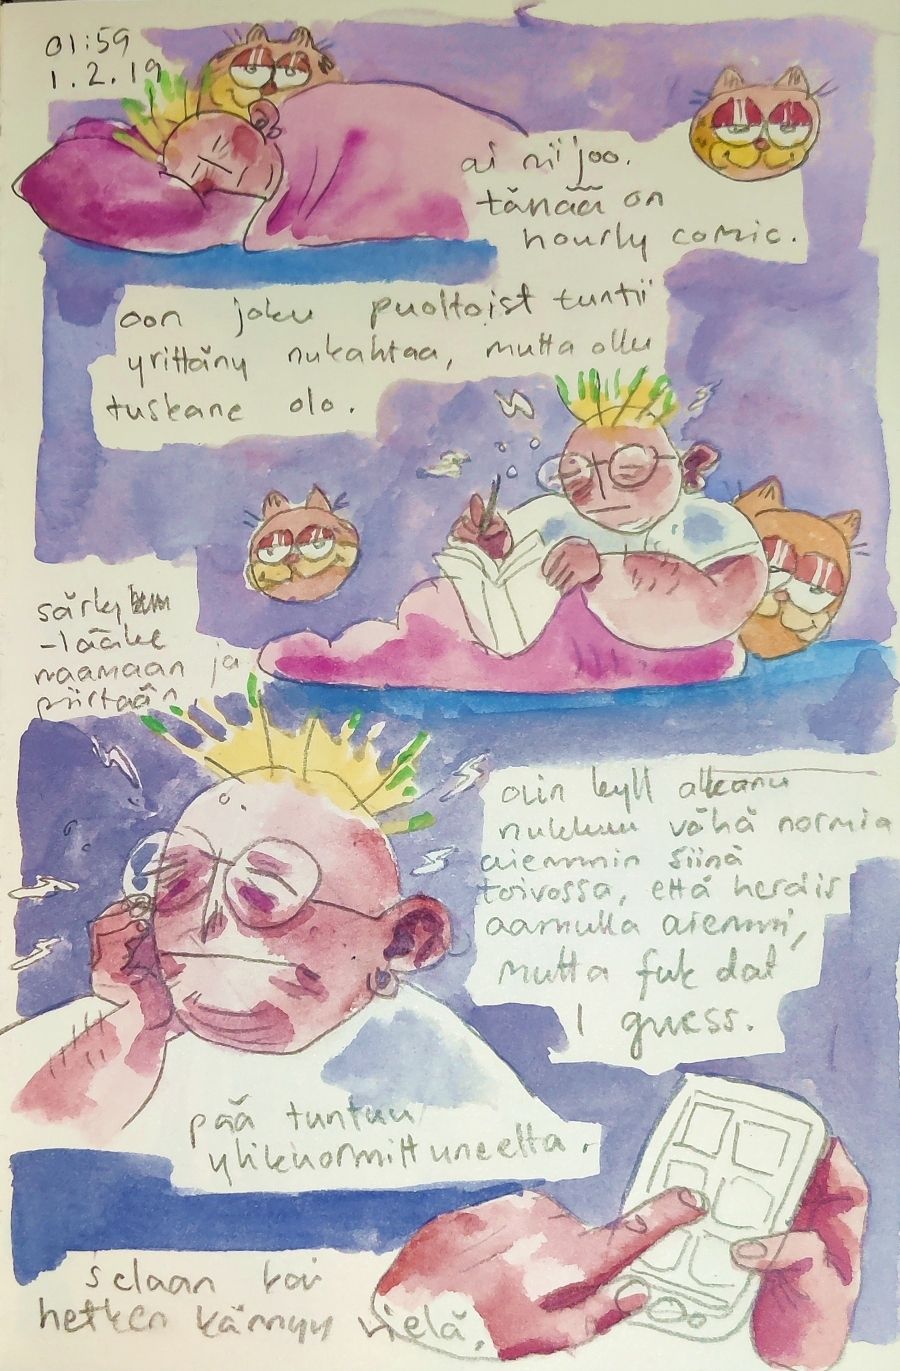 01:59
1.2.19
ai nii joo.
tänää on
hourly comic.
oon joku puoltoist tuntii
yrittäny nukahtaa, mutta ollu
tuskane olo.
särky
-lääke
naamaan ja
piirtään
olin kyll alkanu
nukkuu vähä normia
aiemmin siinä
toivossa, että heräis
aamulla aiemmi,
mutta fuk dat
I guess.
pää tuntuu
ylikuormittuneelta.
selaan kai
hetken kännyy vielä.